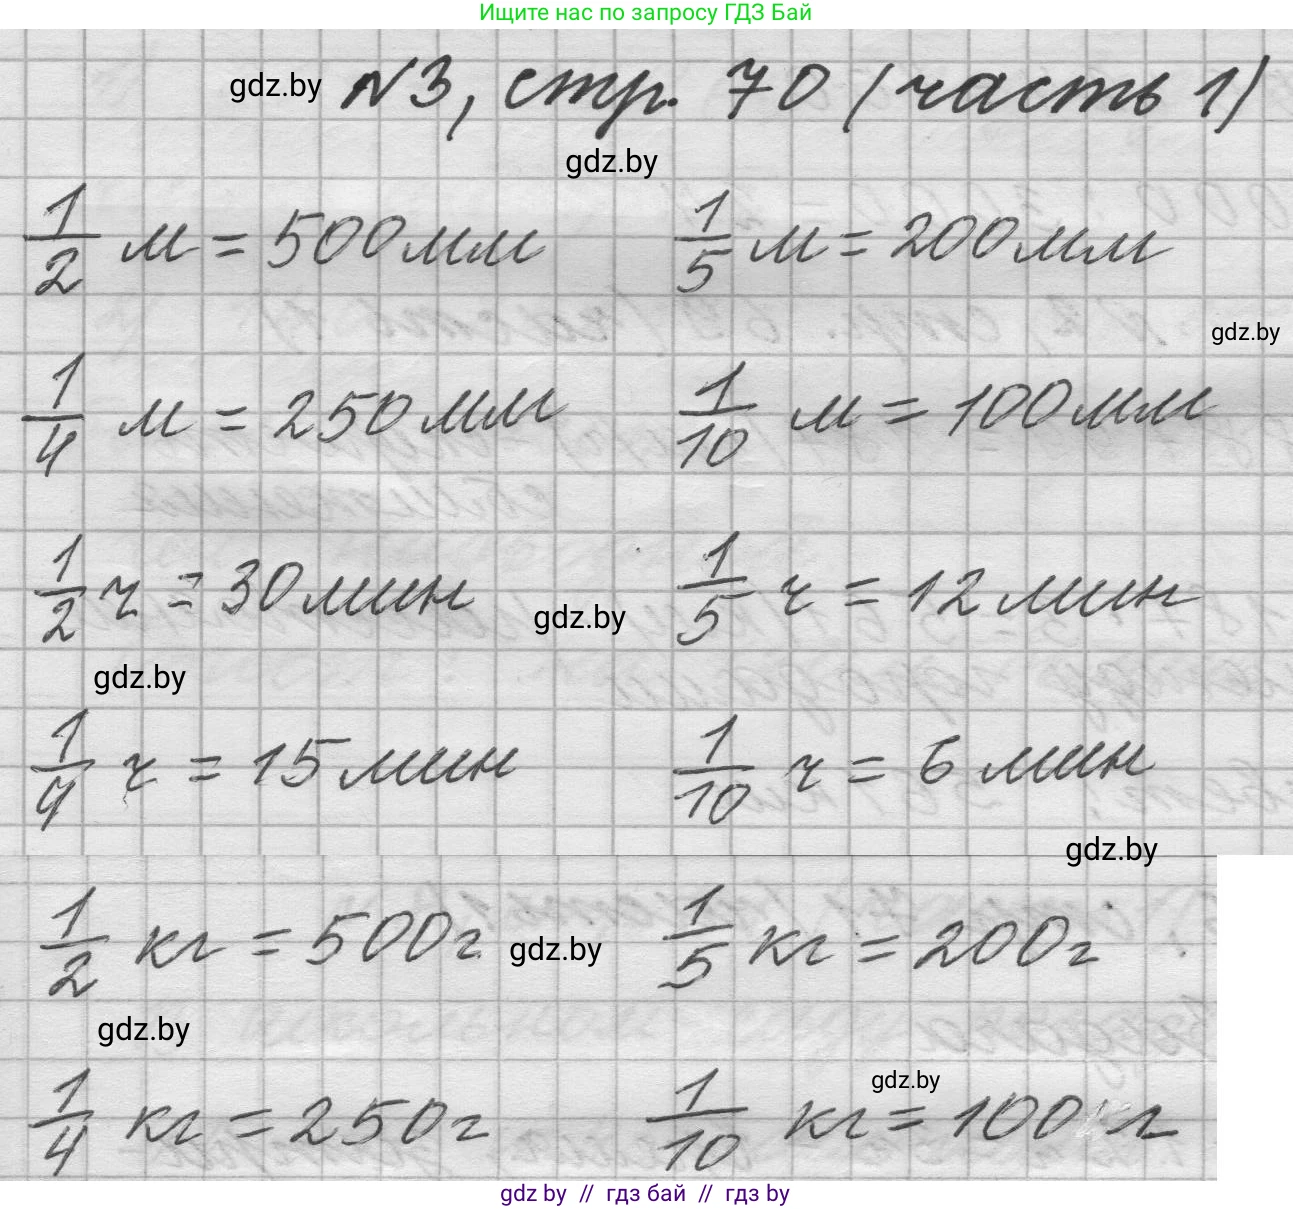 Ищите нас по запросу ГДЗ Бай
gdz.by N3, стр. 70 (часть 1)
gdz.by
1/2 м = 500мм 1/5 м = 200мм
gdz.by
1/4 м = 250мм 1/10 м = 100мм
1/2 ч = 30мин gdz.by 1/5 ч = 12 мин
gdz.by
1/4 ч = 15мин 1/10 ч = 6 мин
gdz.by
1/2 кг = 500г gdz.by 1/5 кг = 200г
gdz.by
gdz.by
1/4 кг = 250г 1/10 кг = 100 г
gdz by // гдз бай // гдз by